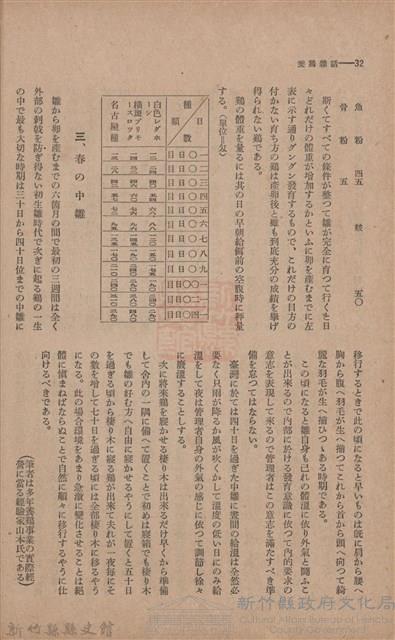 養鶏雜話——32
魚粉 四五 糠 五〇
骨粉 五
斯くてすべての條件が整つて雛が完全に育つて行くと日
々どれだけの體重が増加するかといふに卵を産むまでに左
表に示す通りグングン發育するもので、これだけの目方の
付かない育ち方の鶏は産卵後と雖も到底充分の成績を擧げ
得られない鶏である。
鶏の體重を量るには其の日の早朝給餌前の空腹時に秤量
する。(單位=匁)
日數
種類
白色レグホーン
横斑プリモースロック
名古屋種
三、春の中雛
雛から卵を産むまでの六箇月の間で最初の三週間は全く
外部の刺戟を防ぎ得ない初生雛時代で次ぎに起る鶏の一生
の中で最も大切な時期は三十日から四十日位までの中雛に
移行するときで此の頃になると早いものは既に肩から腰へ
胸から腹へ羽毛が生へ揃つてこれから首から頭へ向つて綺
麗な羽毛が生へ揃ひつゝある時期である。
この頃になると雛自身も已れの體溫に依り外氣と鬪ふこ
とが出來るので内部に於ける發育意識に依つて内的要求の
意志を表現して來るので管理者はこの意志を滿たすべき準
備を忘つてはならない。
臺灣に於ては四十日を過ぎた中雛に晝間の給溫は全然必
要なく只雨が降るか風が吹くかして溫度の低い日にのみ給
溫をして夜は管理者自身の外氣の感じに依つて調節し徐々
に廢溫することゝする。
次に將來鶏を寢かせる棲り木は出來るだけ早くから準備
して舍内の一隅に備へて置くことで初めは寢箱でも棲り木
でも雛の好む方へ自由に寢かせるやうにして置くと五十日
を過ぎる頃から棲り木に寢る鶏が出來て夫れが一夜毎にそ
の數を増して七十日を過ぎる頃には全部棲り木に移るやう
になる。此の場合環境をあまり急激に變化させることは絕
體に愼まねばならぬことで自然に順々に移行するやうに仕
向けるべきである。
(筆者は多年養鶏事業の實際經
營に當る經驗家山本氏である)
新竹縣縣史館
新竹縣政府文化局